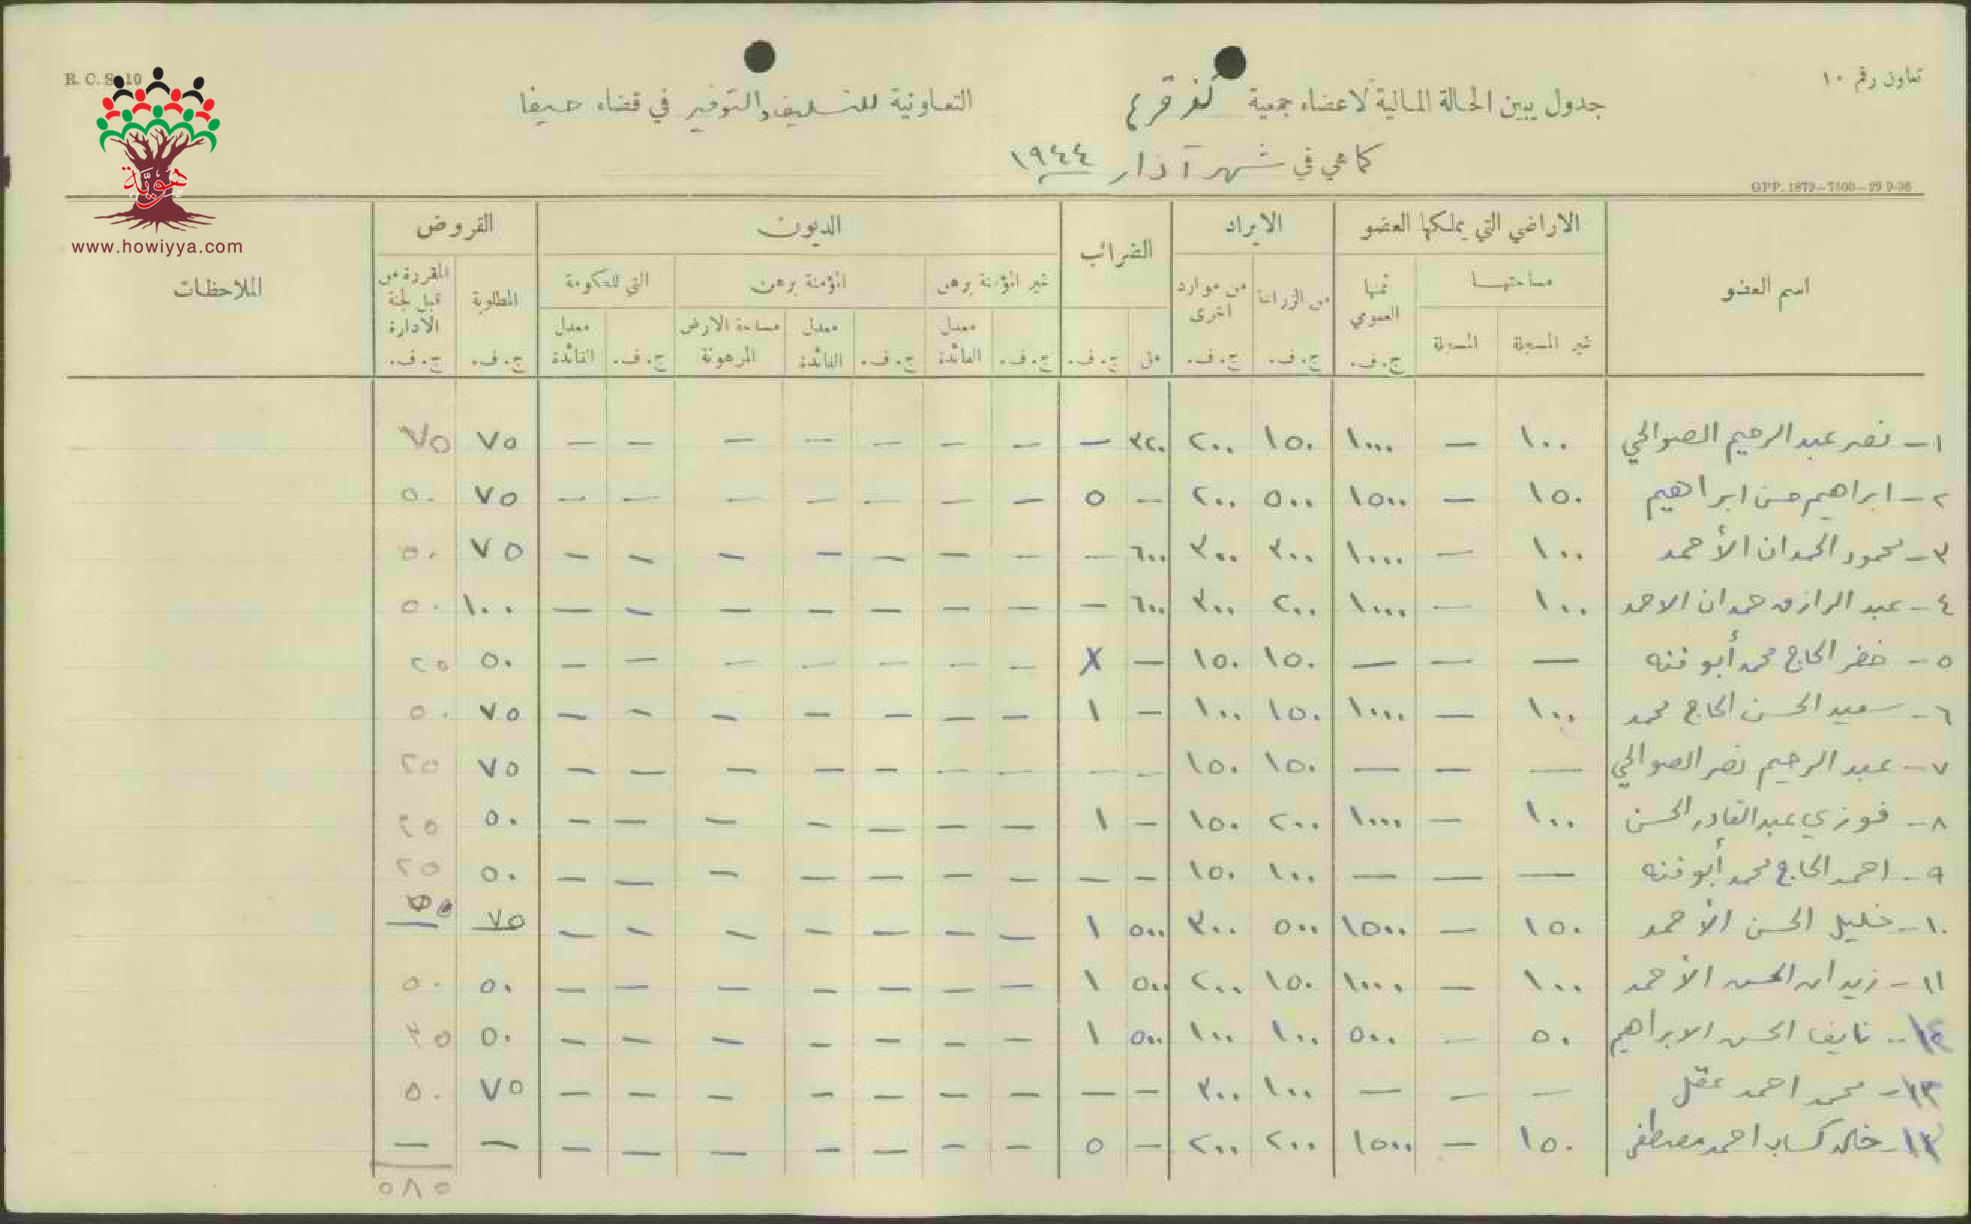 تعاون رقم ١٠
R. C. S. 10
جدول يبين الحالة المالية لاعضاء جمعية كفر قرع التعاونية للتسليف والتوفير في قضاء حيفا
كما هي في شهر آذار ١٩٤٤
GPP. 1879—7500—29-9-36
هويّة
www.howiyya.com
اسم العضو الاراضي التي يملكها العضو الايراد الضرائب الديون القروض الملاحظات
مساحتها ثمنها العمومي من الزراعة من موارد اخرى غير المؤمنة برهن المؤمنة برهن التي للحكومة المطلوبة المقررة من قبل لجنة الادارة
غير المسجلة المسجلة ج.ف. ج.ف. ج.ف. مل ج.ف. ج.ف. معدل الفائدة ج.ف. معدل الفائدة مساحة الارض المرهونة ج.ف. معدل الفائدة ج.ف. ج.ف.
١- نصر عبد الرحيم الصوالحي ١٠٠ — ١٠٠٠ ١٥٠ ٢٠٠ ٣٢٠ — — — — — — — — ٧٥ ٧٥
٢- ابراهيم حسن ابراهيم ١٥٠ — ١٥٠٠ ٥٠٠ ٢٠٠ — ٥ — — — — — — — ٧٥ ٥٠
٣- محمود الحمدان الأحمد ١٠٠ — ١٠٠٠ ٣٠٠ ٣٠٠ ٦٠٠ — — — — — — — — ٧٥ ٥٠
٤- عبد الرازق حمدان الاحمد ١٠٠ — ١٠٠٠ ٢٠٠ ٣٠٠ ٦٠٠ — — — — — — — — ١٠٠ ٥٠
٥- خضر الحاج محمد أبو فنه — — — ١٥٠ ١٥٠ — X — — — — — — — ٥٠ ٢٥
٦- سعيد الحسن الحاج محمد ١٠٠ — ١٠٠٠ ١٥٠ ١٠٠ — ١ — — — — — — — ٧٥ ٥٠
٧- عبد الرحيم نصر الصوالحي — — — ١٥٠ ١٥٠ — — — — — — — — — ٧٥ ٢٥
٨- فوزي عبد القادر الحسن ١٠٠ — ١٠٠٠ ٢٠٠ ١٥٠ — ١ — — — — — — — ٥٠ ٢٥
٩- احمد الحاج محمد أبو فنه — — — ١٠٠ ١٥٠ — — — — — — — — — ٥٠ ٢٥
١٠- خليل الحسن الأحمد ١٥٠ — ١٥٠٠ ٥٠٠ ٣٠٠ ٥٠٠ ١ — — — — — — — ٧٥
١١- زيدان الحسن الأحمد ١٠٠ — ١٠٠٠ ١٥٠ ٢٠٠ ٥٠٠ ١ — — — — — — — ٥٠ ٥٠
١٢- نايف الحسن الابراهيم ٥٠ — ٥٠٠ ١٠٠ ١٠٠ ٥٠٠ ١ — — — — — — — ٥٠ ٣٥
١٣- محمد احمد عقل — — — ١٠٠ ٣٠٠ — — — — — — — — — ٧٥ ٥٠
خالد كساب احمد مصطفى ١٥٠ — ١٥٠٠ ٢٠٠ ٢٠٠ — ٥ — — — — — — — — —
٥٨٥